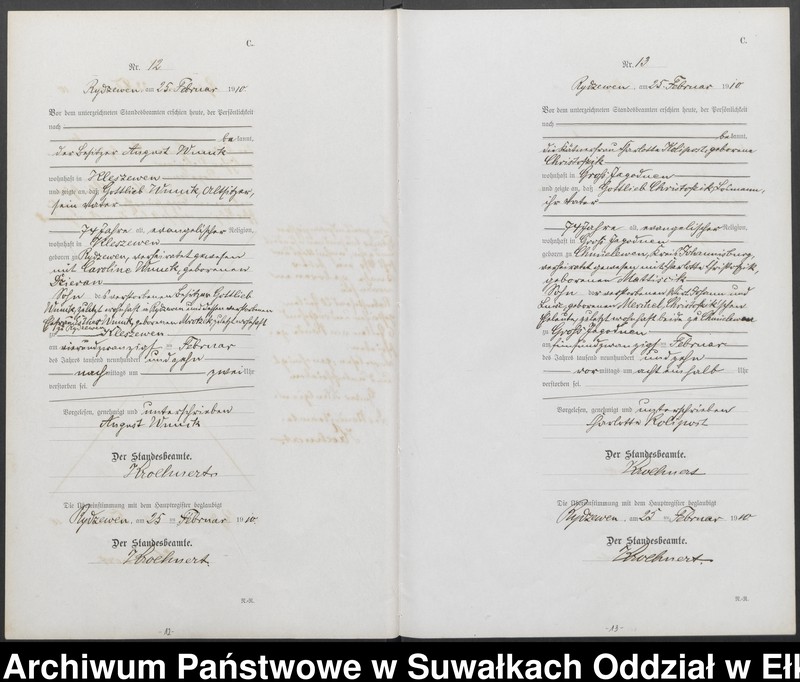 C.
Nr. 12
Rydzewen, am 25. Februar 1910.
Vor dem unterzeichneten Standesbeamten erschien heute, der Persönlichkeit
nach
be kannt,
der Besitzer August
wohnhaft in Kleszewen
und zeigte an, daß Gottlieb Altsitzer,
sein Vater
74 Jahre alt, evangelischer Religion,
wohnhaft in Kleszewen
geboren zu Rydzewen, verheiratet gewesen
mit Caroline geborenen
Sohn des verstorbenen Besitzer Gottlieb
zuletzt wohnhaft in Rydzewen und dessen verstorbenen
geborenen zuletzt wohnhaft
zu Kleszewen
am vierundzwanzigsten Februar
des Jahres tausend neunhundert und zehn
nach mittags um zwei Uhr
verstorben sei.
Vorgelesen, genehmigt und unterschrieben
August
Der Standesbeamte.
Kroehnert
Die Übereinstimmung mit dem Hauptregister beglaubigt
Rydzewen, am 25 ten Februar 1910.
Der Standesbeamte.
Kroehnert.
-12-
C.
Nr. 13
Rydzewen, am 25 Februar 1910
Vor dem unterzeichneten Standesbeamten erschien heute, der Persönlichkeit
nach
be kannt,
die Kätnerfrau Charlotte geborene
wohnhaft in Groß Jagodnen
und zeigte an, daß Gottlieb
ihr Vater
74 Jahre alt, evangelischer Religion,
wohnhaft in Groß Jagodnen
geboren zu Chmielewen, Kreis Johannisburg,
verheiratet gewesen mit Charlotte
geborenen
Sohn der verstorbenen Wirt Johann und
geborenen
Eheleute, zuletzt wohnhaft beide zu Chmielewen
zu Groß Jagodnen
am fünfundzwanzigsten Februar
des Jahres tausend neunhundert und zehn
vor mittags um acht einhalb Uhr
verstorben sei.
Vorgelesen, genehmigt und unterschrieben
Charlotte
Der Standesbeamte.
Kroehnert
Die Übereinstimmung mit dem Hauptregister beglaubigt
Rydzewen, am 25 ten Februar 1910
Der Standesbeamte.
Kroehnert.
-13-
Archiwum Państwowe w Suwałkach Oddział w Ełk